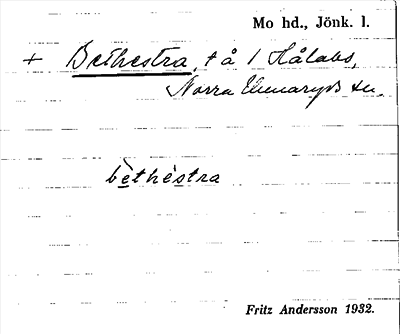 Mo hd., Jönk. l.
+ Bethestra, t å 1 Hålabs,
Norra Unnaryds sn.
bethestra
Fritz Andersson 1932.